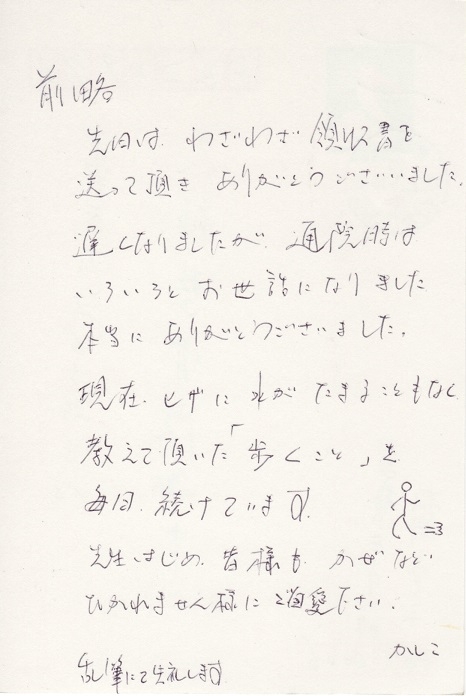 前略
先日は わざわざ 領収書を
送って頂き ありがとうございました。
遅くなりましたが、通院時は
いろいろと お世話になりました
本当に ありがとうございました。
現在、ヒザに 水が たまることもなく
教えて頂いた「歩くこと」を
毎日、続けています。
先生はじめ、皆様も かぜなど
ひかれません様に ご自愛下さい。
かしこ
乱筆にて失礼します